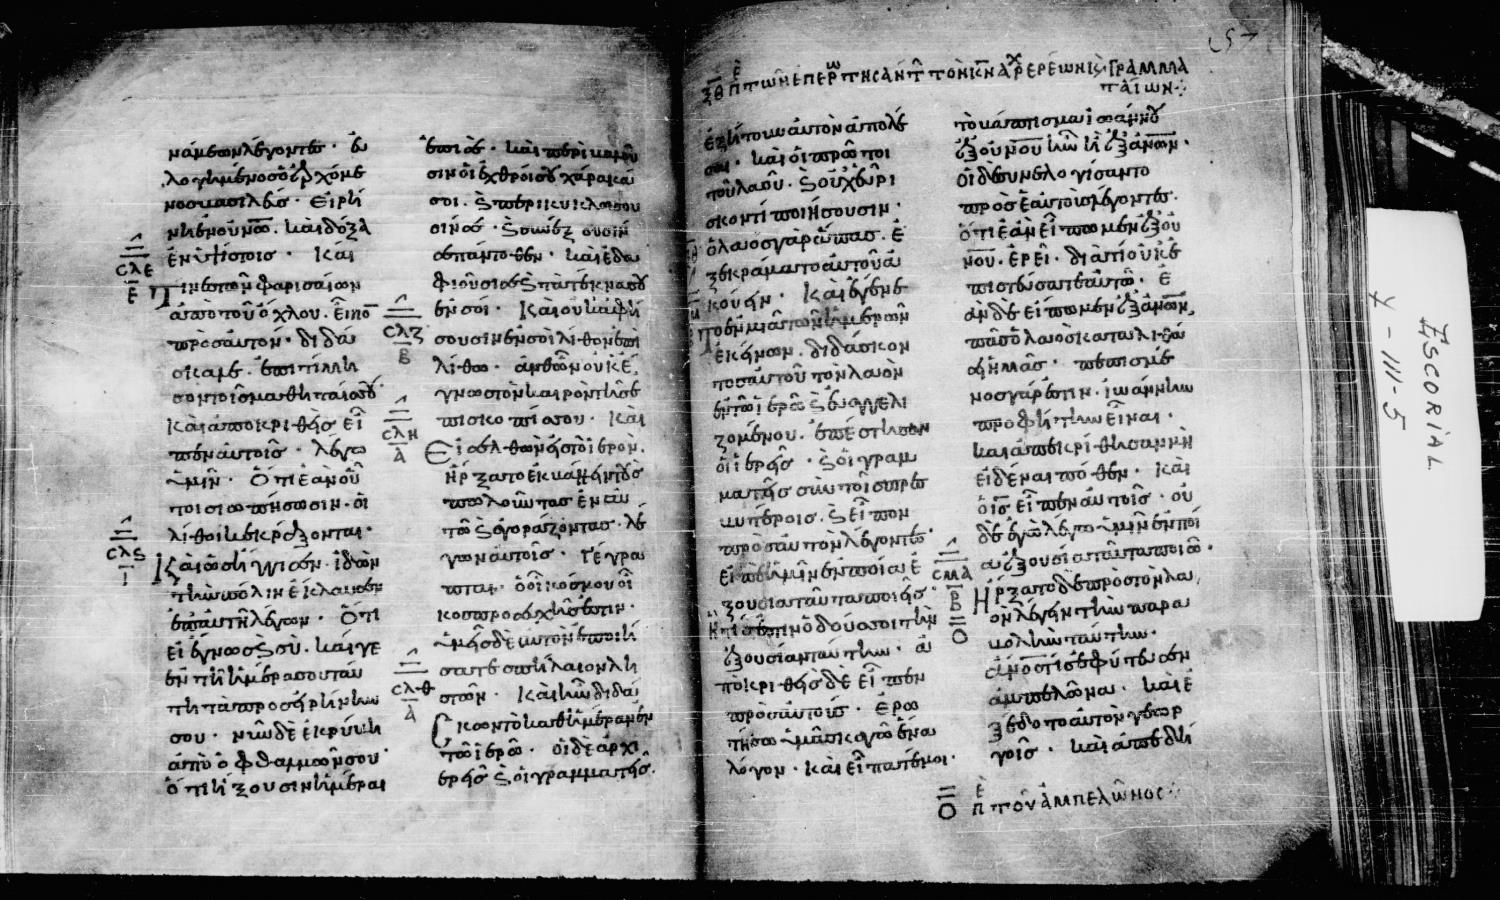 νάμεων λέγοντες · εὐ
λογημένος ὁ ἐρχόμε
νος βασιλεύς · Εἰρή
νη ἐν οὐνῶ · καὶ δόξα
ἐν ὑψίστοις · Καί
σλε
ε
τινες τῶν φαρισαίων
ἀπὸ τοῦ ὄχλου · εἶπο
πρὸς αὐτόν · διδά
σκαλε · ἐπιτίμη
σον τοῖς μαθηταῖς σου
Καὶ ἀποκριθεὶς εἶ
πεν αὐτοῖς · λέγω
ὑμῖν · Ὅτι ἐὰν οὗ
τοι σιωπήσωσιν · οἱ
λίθοι κεκράξονται ·
σλϛ
ι
Καὶ ὡς ἤγγισεν · ἰδὼν
τὴν πόλιν ἔκλαυσεν
ἐπαυτῆ λέγων · Ὅτι
εἰ ἔγνως ϗ σὺ · καί γε
ἐν τῆ ἡμέρα σου ταύ
τη τὰ πρὸς εἰρήνην
σου · νῦν δὲ ἐκρύβη
ἀπὸ ὀφθαλμῶν σου
ὅτι ἥξουσιν ἡμέραι
ἐπὶ σέ · καὶ περιβαλοῦ
σιν οἱ ἐχθροί σου χάρακά
σοι · ϗ περικυκλώσου
σίν σε · ϗ συνέξουσίν
σε πάντοθεν · καὶ ἐδα
φιοῦσί σε ϗ τὰ τέκνα σου
ἐν σοί · Καὶ οὐκ ἀφή
σλζ
β
σουσιν ἐν σοὶ λίθον ἐπὶ
λίθω · ἀνθ ὧν οὐκ ἔ
γνως τὸν καιρὸν τῆς ἐ
πισκοπῆς σου · Καὶ
σλη
α
εἰσελθὼν εἰς τὸ ἱερὸν ·
ἤρξατο ἐκβάλλειν τοὺς
πωλοῦντας ἐν αὐ
τῶ ϗ ἀγοράζοντας · λέ
γων αὐτοῖς · Γέγρα
πται · ὁ οἶκός μου οἶ
κος προσευχῆς ἐστιν ·
ὑμεῖς δὲ αὐτὸν ἐποιή
σατε σπήλαιον λη
στῶν · Καὶ ἦν διδά
σλθ
α
σκων τὸ καθημέραν ἐν
τῶ ἱερῶ · οἱ δὲ ἀρχι
ερεῖς ϗ οἱ γραμματεῖς
ξθ π τῶν ἐπερωτησάντ τὸν κν ἀρχερέων ϗ γραμμα
ταίων
ἐζήτουν αὐτὸν ἀπολέ
σαι · καὶ οἱ πρῶτοι
τοῦ λαοῦ · ϗ οὐχ εὕρι
σκον τί ποιήσουσιν ·
ὁ λαὸς γὰρ ἅπας · ἐ
ξεκρέματο αὐτοῦ ἀ
κούειν · Καὶ ἐγένε
το ἐν μιᾶ τῶν ἡμερῶν
ἐκείνων · διδάσκον
τος αὐτοῦ τὸν λαὸν
ἐν τῶ ἱερῶ ϗ εὐαγγελι
ζομένου · ἐπέστησαν
οἱ ἱερεῖς · ϗ οἱ γραμ
ματεῖς σὺν τοῖς πρεσ
βυτέροις · ϗ εἶπον
πρὸς αὐτὸν λέγοντες ·
εἰπὲ ἡμῖν ἐν ποία ἐ
ξουσία ταῦτα ποιεῖς ·
ἢ τίς ἐστιν ὁ δούς σοι τὴν
ἐξουσίαν ταύτην · ἀ
ποκριθεὶς δὲ εἶπεν
πρὸς αὐτούς · ἐρω
τήσω ὑμᾶς κἀγὼ ἕνα
λόγον · καὶ εἴπατέ μοι ·
τὸ βάπτισμα ἰωάννου
ἐξ οὐνοῦ ἦν ἢ ἐξ ἀνων ·
οἱ δὲ συνελογίσαντο
πρὸς ἑαυτοὺς λέγοντες ·
ὅτι ἐὰν εἴπωμεν ἐξ οὐ
νοῦ · ἐρεῖ · διατί οὐκ ἐ
πιστεύσατε αὐτῶ · ἐ
ὰν δὲ εἴπωμεν ἐξ ἀνων,
πᾶς ὁ λαὸς καταλιθά
σει ἡμᾶς · πεπεισμέ
νος γάρ ἐστιν · ἰωάννην
προφήτην εἶναι ·
καὶ ἀπεκρίθησαν μὴ
εἰδέναι πόθεν · Καὶ
ὁ ἰς εἶπεν αὐτοῖς · οὐ
δὲ ἐγὼ λέγω ὑμῖν ἐν ποί
α ἐξουσία ταῦτα ποιῶ ·
σμα
β
ο
Ἤρξατο δὲ πρὸς τὸν λα
ὸν λέγειν τὴν παρα
βολὴν ταύτην ·
ἄνος τις ἐφύτευσεν
ἀμπελῶνα · καὶ ἐ
ξέδοτο αὐτὸν γεωρ
γοῖς · καὶ ἀπεδή
ο π τοῦ ἀμπελῶνος
ESCORIAL
Y-III-5